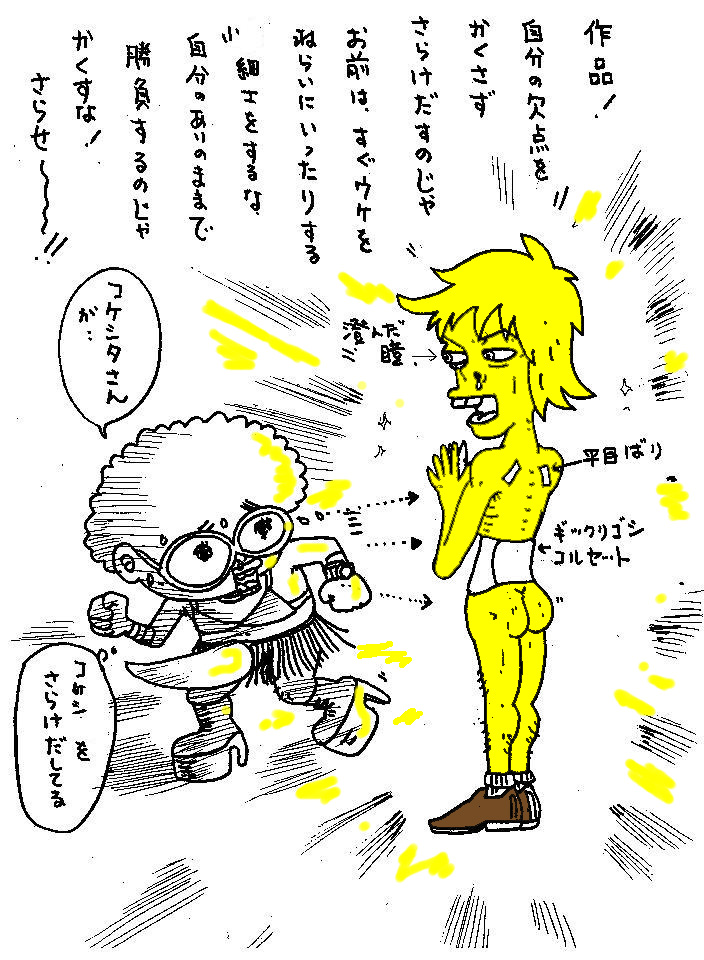 作品!
自分の欠点を
かくさず
さらけだすのじゃ
お前は、すぐウケを
ねらいにいったりする
小細工をするな
自分のありのままで
勝負するのじゃ
かくすな!
さらせ〜〜〜!!
コケシタさん
が‥
澄んだ
瞳
平目ばり
ギックリゴシ
コルセット
コケシを
さらけだしてる